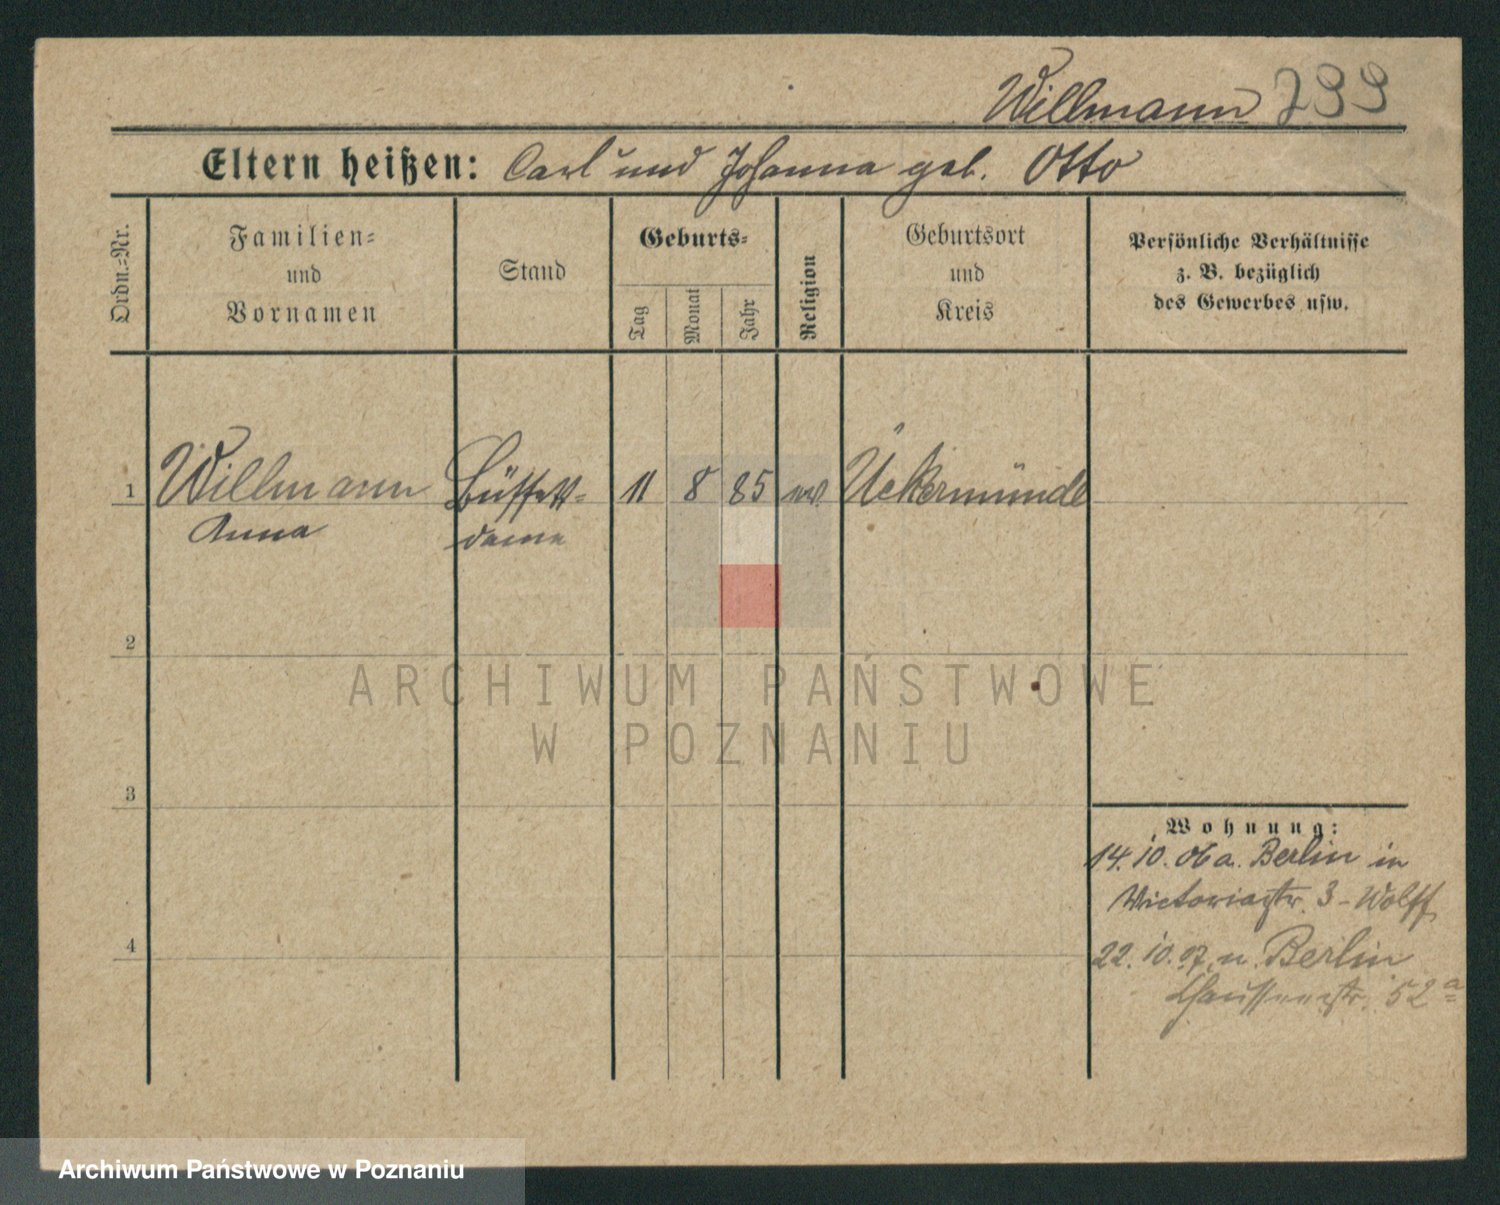 Willmann 799
Eltern heißen: Carl und Johanna geb. Otto
Ordn.-Nr.
Familien-
und
Vornamen
Stand
Geburts-
Tag
Monat
Jahr
Religion
Geburtsort
und
Kreis
Persönliche Verhältnisse
z. B. bezüglich
des Gewerbes usw.
1 Willmann Büffett- 11 8 85 ev. Ückermünde
Anna dame
2
3
4
Wohnung:
14. 10. 06 a. Berlin in
Victoriastr. 3 - Wolff
22. 10. 07 n. Berlin
Chausseestr. 52 a
ARCHIWUM PAŃSTWOWE
W POZNANIU
Archiwum Państwowe w Poznaniu